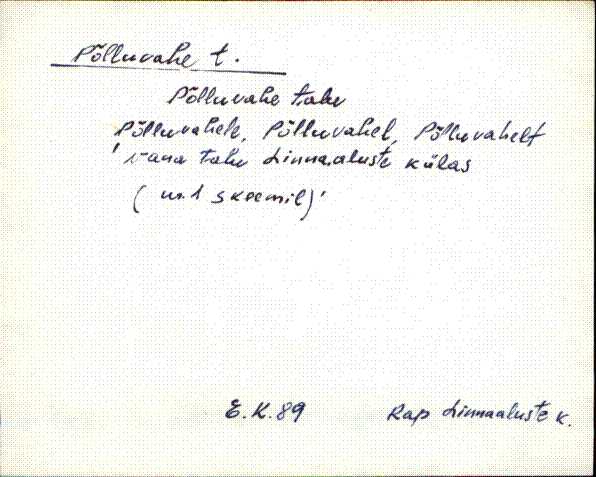 Põlluvahe t.
Põlluvahe talu
Põlluvahele, Põlluvahel, Põlluvahelt
'vana talu Linnaaluste külas
(nr. 1 skeemil)'
E.K. 89
Rap Linnaaluste k.